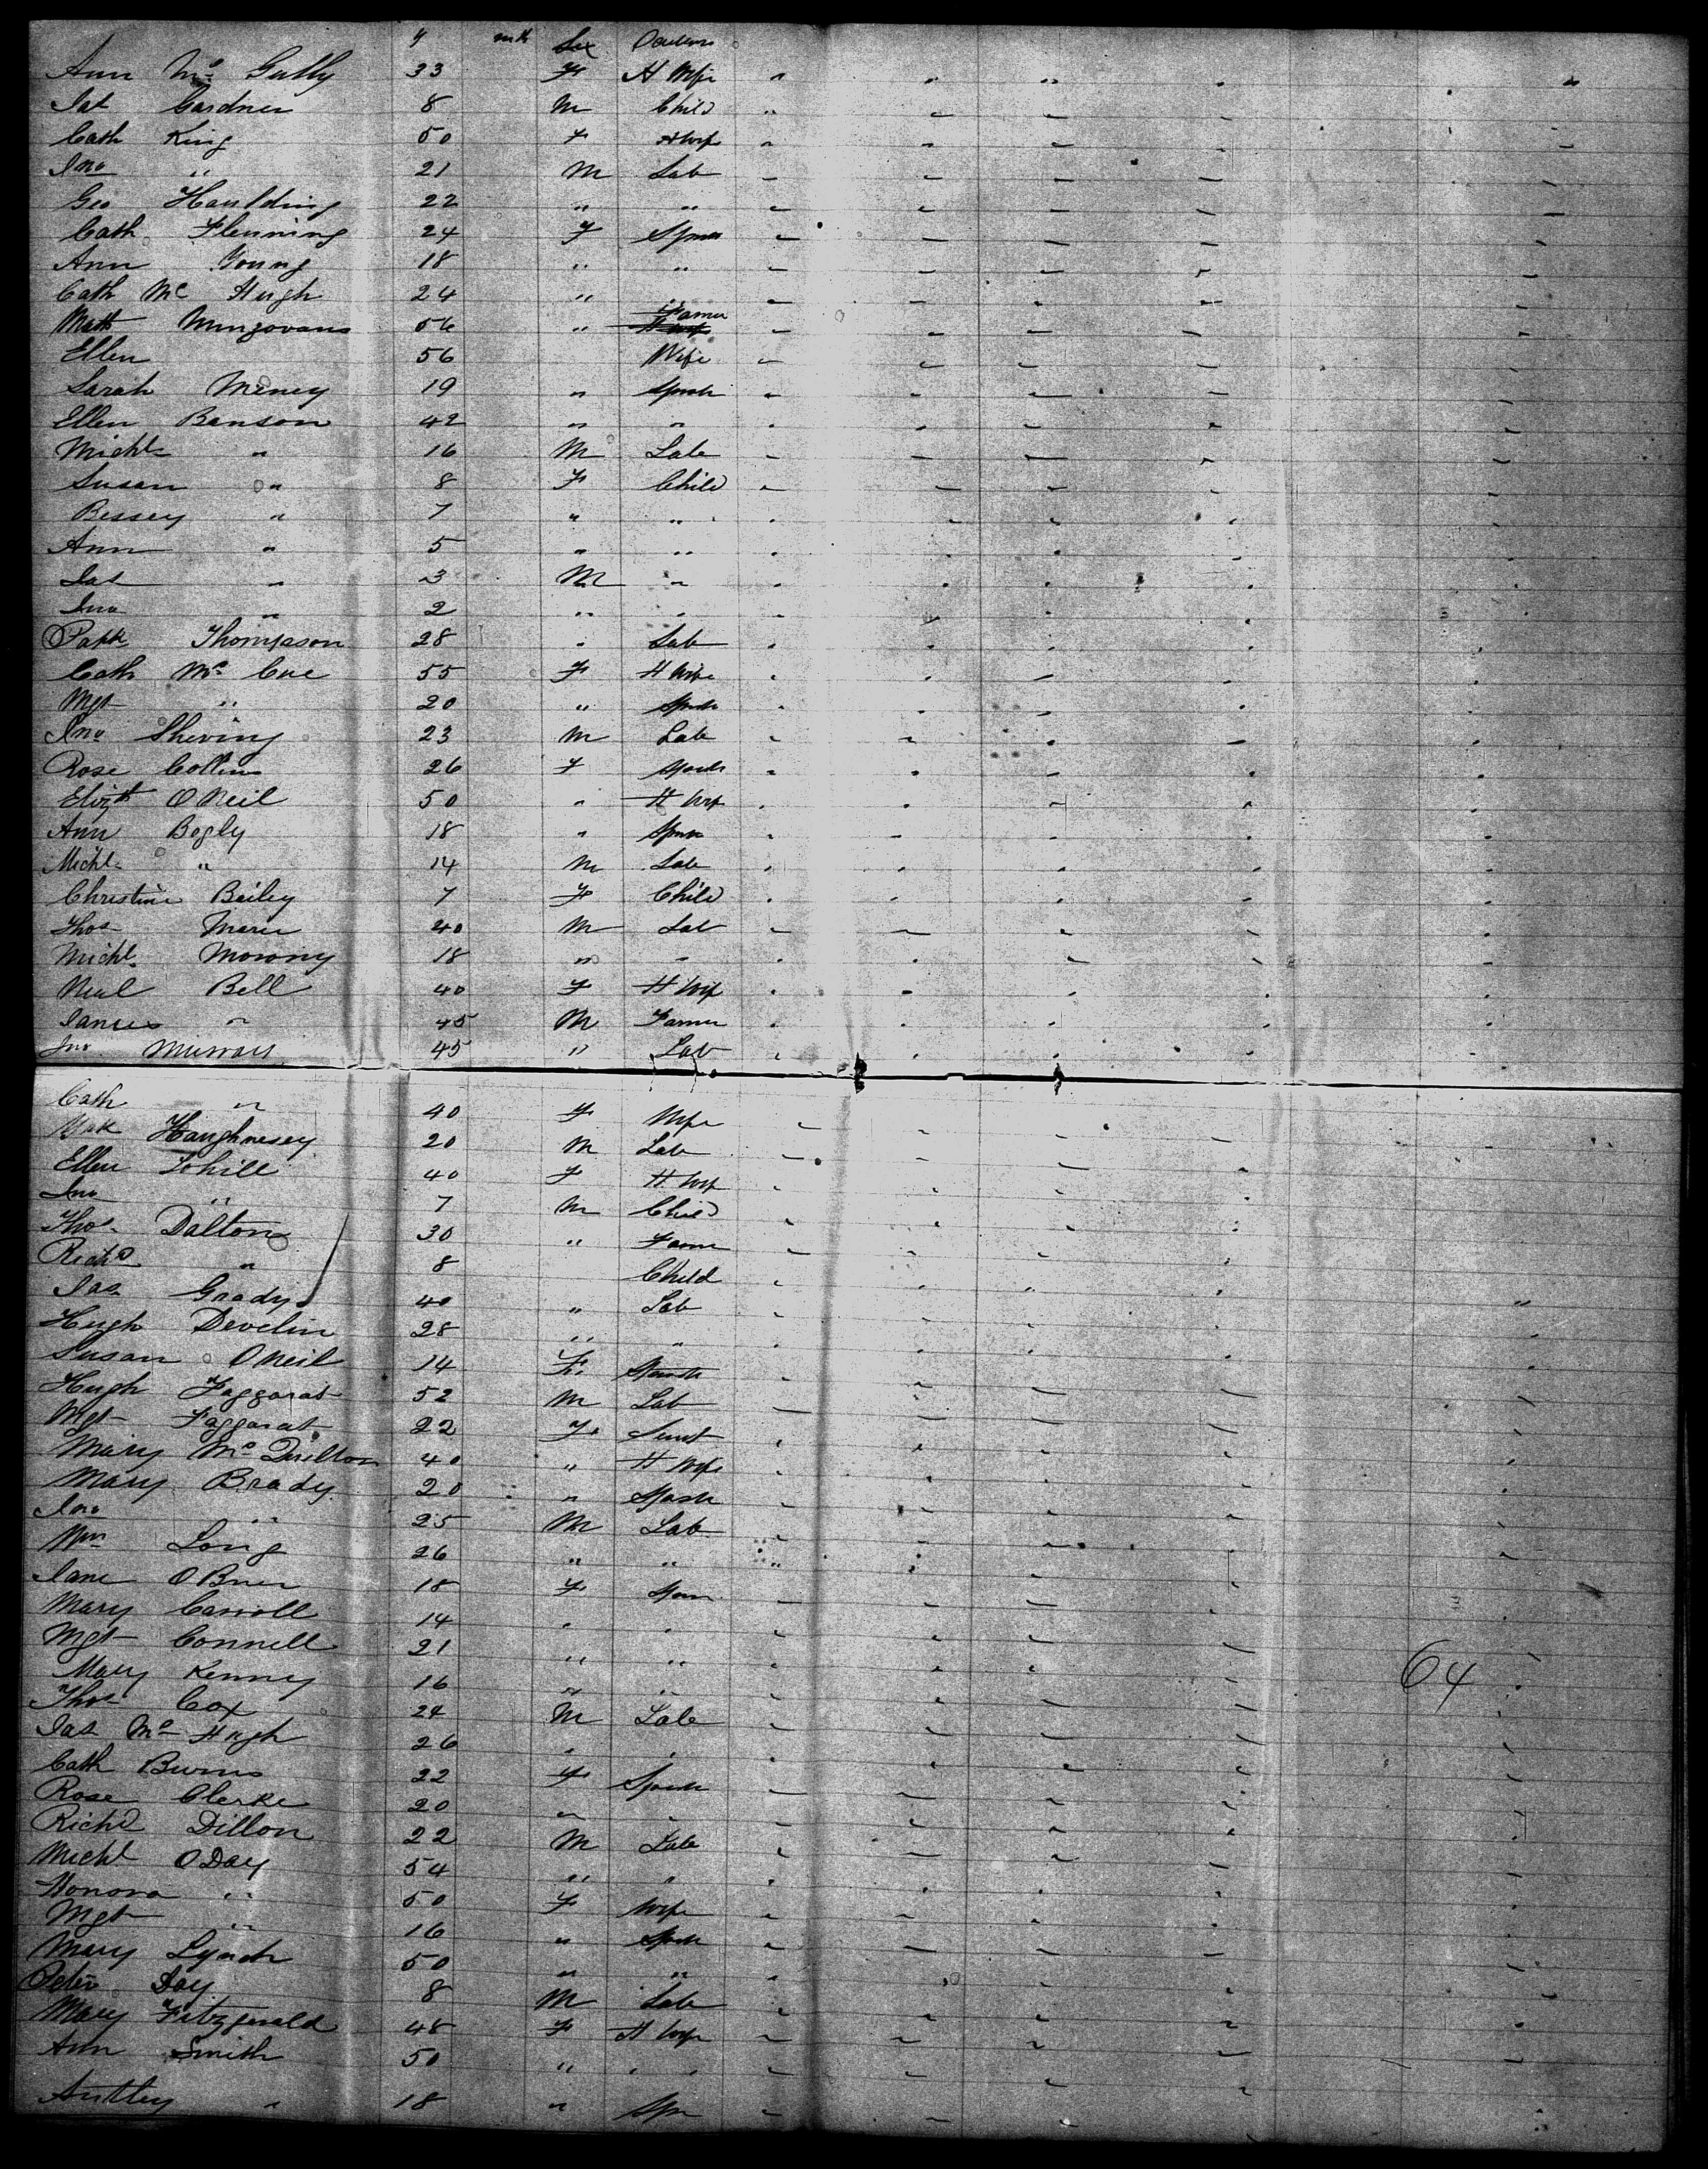 y mth Sex
Ann Mc Gully 33 F H Wife " " " " "
Jas Gardner 8 M Child "
Cath King 50 F H Wife
Jno " 21 M Lab
Geo Haulding 22 " "
Cath Flenning 24 F Spns
Ann Young 18 " "
Cath Mc Hugh 24 " "
Matt 56 " Farmer
Ellen 56 Wife
Sarah Meney 19 " Spnst
Ellen Banson 42 " "
Michl " 16 M Lab
Susan " 8 F Child
Bessey " 7 " "
Ann " 5 " "
Jas " 3 M "
Jno " 2 " "
Patk Thompson 28 " Lab
Cath Mc Cue 55 F H Wife
Mgt " 20 " Spns
Jno Shering 23 M Lab
Rose Collins 26 F Spns
Elizth O Neil 50 " H Wif
Ann Begly 18 " Spns
Michl " 14 M Lab
Christine Beiley 7 F Child
Thos 40 M Lab
Michl 18 " "
Neal Bell 40 F H Wif
James " 45 M Farmer
Jno Murray 45 " Lab
Cath " 40 F Wife
Haughnesey 20 M Lab
Ellen Tohill 40 F H Wif
Jno " 7 M Child
Thos Dalton 30 " Farm
Richd " 8 Child
Jas Grady 40 " Lab
Hugh Develin 28 " "
Susan O Neil 14 F
Hugh Faggarat 52 M Lab
Mgt Faggarat 22 F Sert
Mary Mc Quilton 40 " H Wife
Mary Brady 20 " Spns
Jno " 25 M Lab
Wm Long 26 " " "
Jane O Brien 18 F Spns
Mary Carroll 14 " "
Mgt Connell 21 " "
Mary Kenney 16 " "
64
Thos Cox 24 M Lab
Jas Mc Hugh 26 " "
Cath Burns 22 F Spns
Rose Clarke 20 " "
Richd Dillon 22 M Lab
Michl O Day 54 " "
Honora " 50 F Wife
Mgt " 16 " Spns
Mary Lynch 50 " "
Peter Day 8 M Lab
Mary Fitzgerald 48 F H Wife
Ann Smith 50 " "
" 18 " Spn